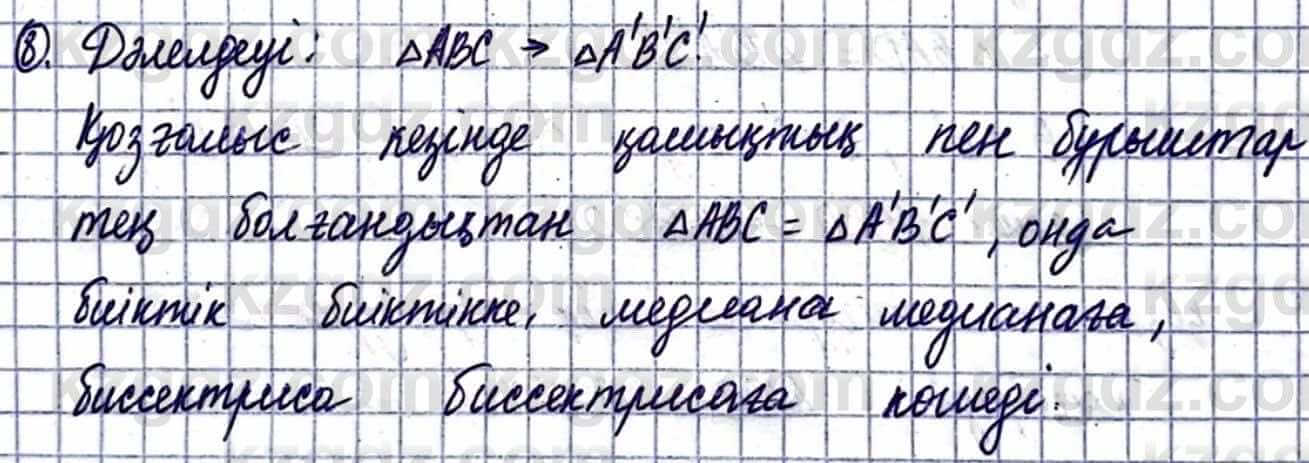 8). Дәлелдеуі: △ABC → △A'B'C'.
Қозғалыс кезінде қашықтық пен бұрыштар
тең болғандықтан △ABC = △A'B'C', онда
биіктік биіктікке, медиана медианаға,
биссектриса биссектрисаға көшеді.